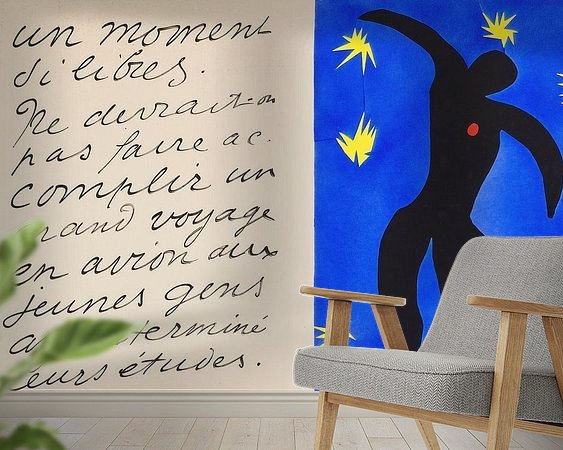 un moment
si libres.
Ne devrait-on
pas faire ac-
complir un
grand voyage
en avion aux
jeunes gens
terminé
leurs études.